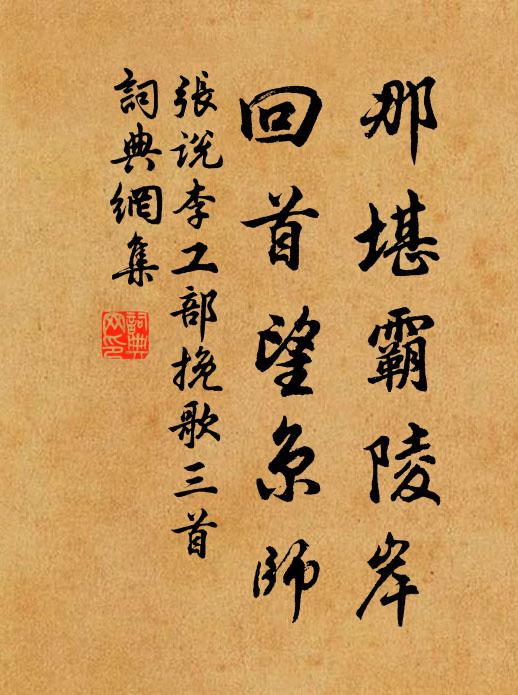 那堪霸陵岸
回首望京师
張说李工部挽歌三首
詞典網集
詞典网印